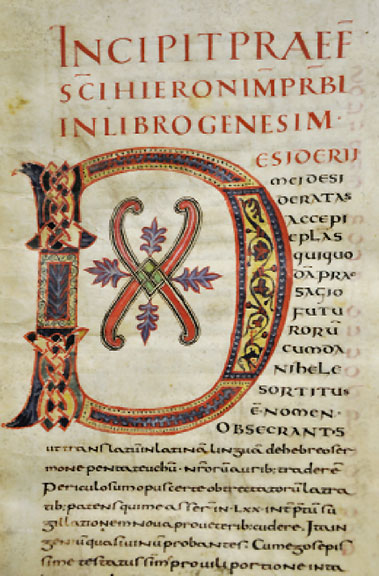 INCIPIT PRAEF̄
SC̄I HIERONIM̄ PRB̄I
IN LIBRO GENESIM ·
DESIDERII
MEI DESI
DERATAS
ACCEPI
EPLAS
QUI QUO
DĀ PRAE
SAGIO
FUTU
RORŪ
CUM DA
NIHELE
SORTITUS
E· NOMEN ·
OBSECRANTS
ut translatū in latinā linguā de hebreo ser
mone pentateuchū nr̄orū aurib; traderē
Periculosum opus certe obtrectatorū latra
tib; patens qui me asser in LXX int̄p̄tū su
gillatione nova pro veterib; cudere. Ita in
geniū quasi vinū probantes· Cum ego sepis
sime testatus sim pro virili portione in ta